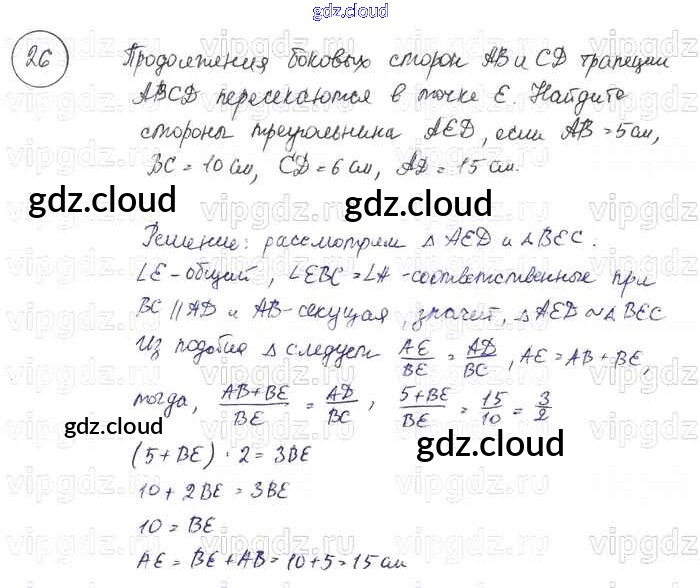 gdz.cloud
26
Продолжения боковых сторон AB и CD трапеции
ABCD пересекаются в точке E. Найдите
стороны треугольника AED, если AB = 5 см,
BC = 10 см, CD = 6 см, AD = 15 см.
gdz.cloud gdz.cloud
Решение: рассмотрим △ AED и △ BEC.
∠E - общий, ∠EBC = ∠A - соответственные при
BC || AD и AB - секущая, значит, △ AED ∾ △ BEC
Из подобия △ следует AE/BE = AD/BC, AE = AB + BE,
тогда, (AB+BE)/BE = AD/BC, (5+BE)/BE = 15/10 = 3/2
gdz.cloud gdz.cloud
(5 + BE) · 2 = 3BE
10 + 2BE = 3BE
10 = BE
gdz.cloud
AE = BE + AB = 10 + 5 = 15 см